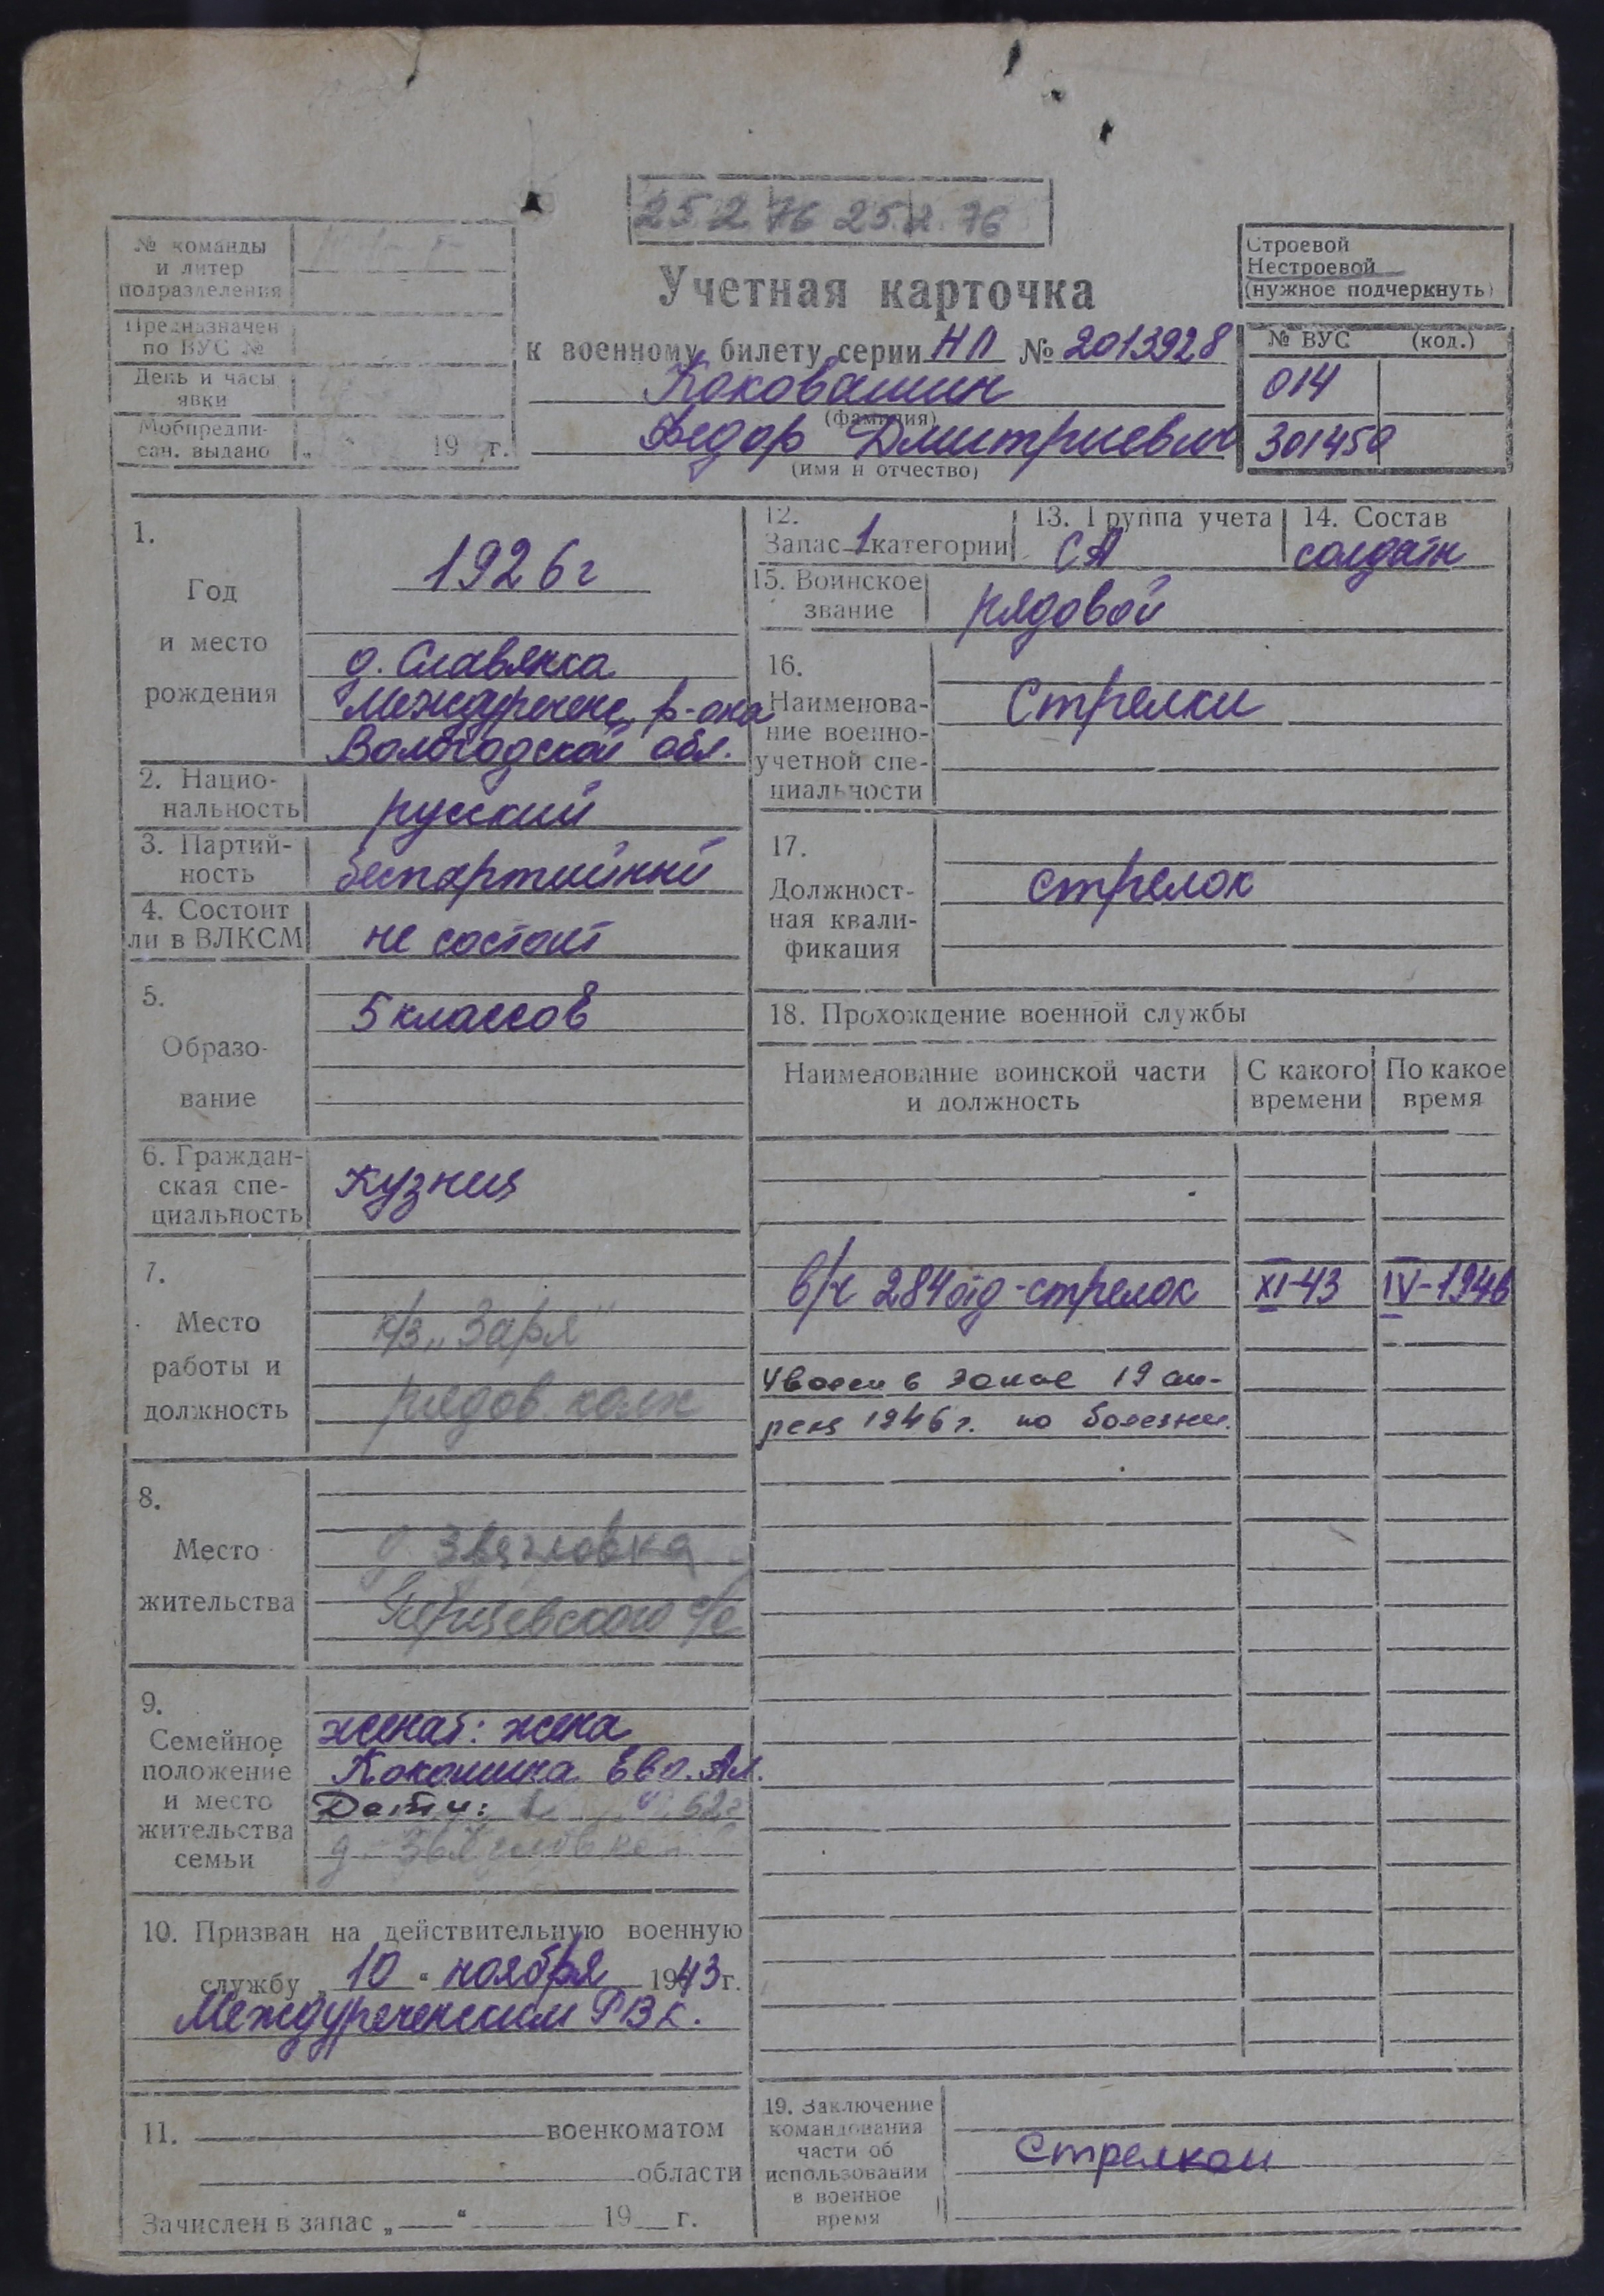 25 2 76 25.2.76
№ команды
и литер
подразделения
Предназначен
по ВУС №
День и часы
явки
Мобпредпи-
сан. выдано „ “ 19 г.
Учетная карточка
к военному билету серии НЛ № 2013928
Коковашин
(фамилия)
Федор Дмитриевич
(имя и отчество)
Строевой
Нестроевой
(нужное подчеркнуть)
№ ВУС (код.)
014
301450
1.
Год
и место
рождения
1926г
д. Славянка
Междуреченс р-она
Вологодской обл.
2. Нацио-
нальность
русский
3. Партий-
ность
беспартийный
4. Состоит
ли в ВЛКСМ
не состоит
5.
Образо-
вание
5 классов
6. Граждан-
ская спе-
циальность
Кузнец
7.
Место
работы и
должность
к/з „Заря“
рядов. колх
8.
Место
жительства
д. Звягловка
с/с
9.
Семейное
положение
и место
жительства
семьи
женат: жена
Ал.
Дети: 62г
д.
10. Призван на действительную военную
службу „ 10 “ ноября 1943 г.
Междуреченским РВК.
11. военкоматом
области
Зачислен в запас „ “ 19 г.
12.
Запас 1 категории
13. Группа учета
СА
14. Состав
солдаты
15. Воинское
звание
рядовой
16.
Наименова-
ние военно-
учетной спе-
циальности
Стрелки
17.
Должност-
ная квали-
фикация
стрелок
18. Прохождение военной службы
Наименование воинской части
и должность
С какого
времени
По какое
время
в/ч 284 отд - стрелок XI-43 IV-1946
Уволен в запас 19 ап-
реля 1946 г. по болезни.
19. Заключение
командования
части об
использовании
в военное
время
Стрелком